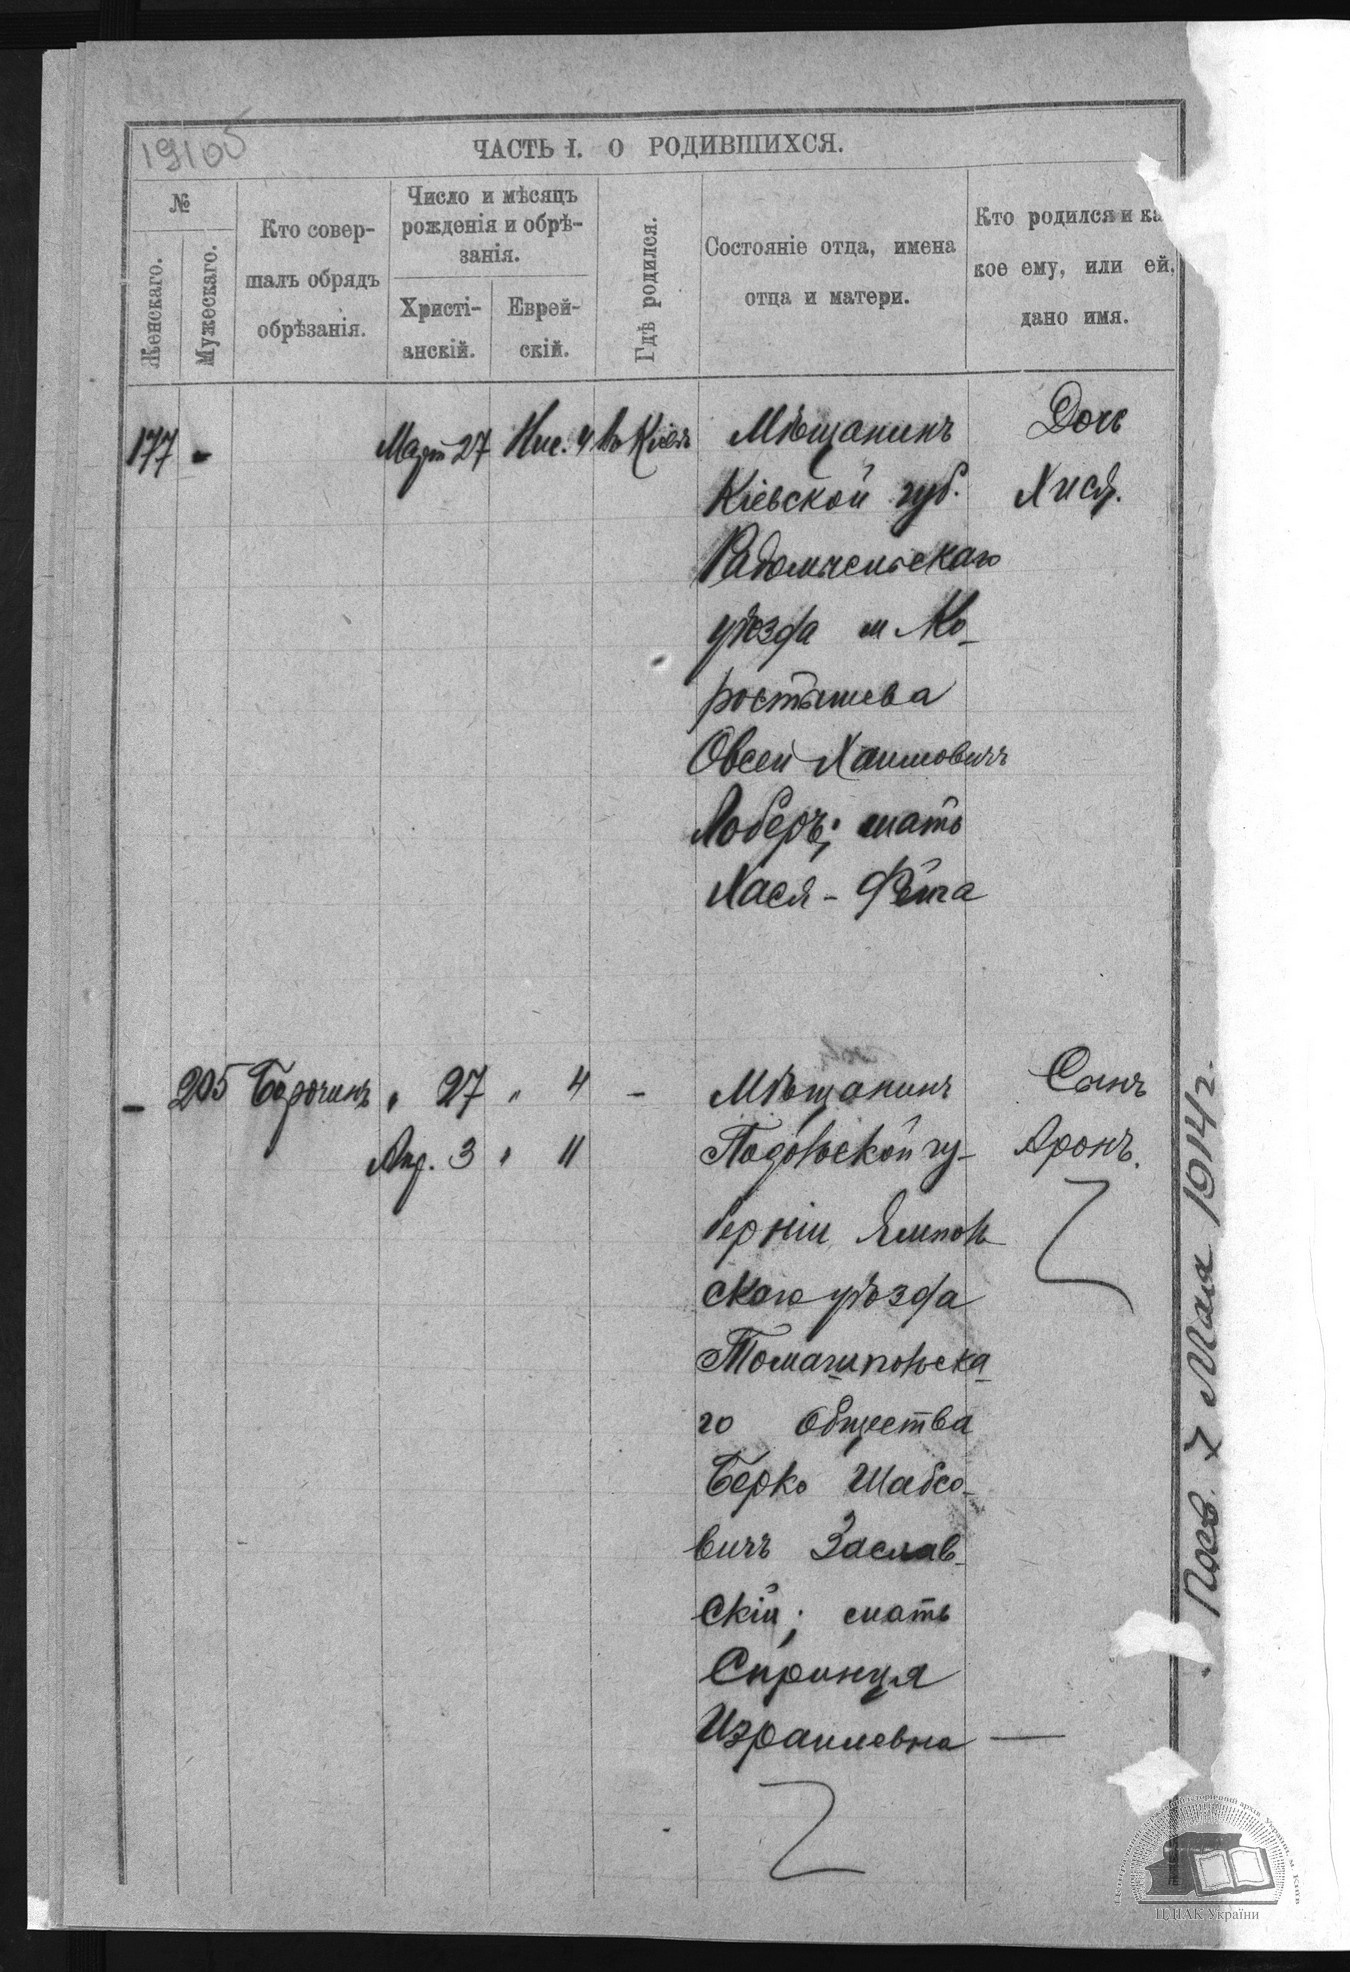 19105
ЧАСТЬ I. О РОДИВШИХСЯ.
№
Женскаго.
Мужескаго.
Кто совер-
шалъ обрядъ
обрѣзанія.
Число и мѣсяцъ
рожденія и обрѣ-
занія.
Христі-
анскій.
Еврей-
скій.
Гдѣ родился.
Состояніе отца, имена
отца и матери.
Кто родился и ка
кое ему, или ей,
дано имя.
177 - Март 27 Нис. 4 Въ Кіевѣ Мѣщанинъ Дочь
Кіевской губ. Хися.
Радомысльскаго
уѣзда м Ко-
ростышева
Овсей Хаимовичъ
Лоберъ; мать
Хася - Фейга
- 205 Борочинъ " 27 " 4 - Мѣщанинъ Сынъ
Апр. 3 " 11 Подольской гу- Аронъ.
берніи Ямполь
скаго уѣзда
Томашпольска
го общества
Берко Шабсо-
вичъ Заслав-
скій; мать
Спринця
Израилевна —
Пров. 7 Мая 1914 г.
ЦДІАК України